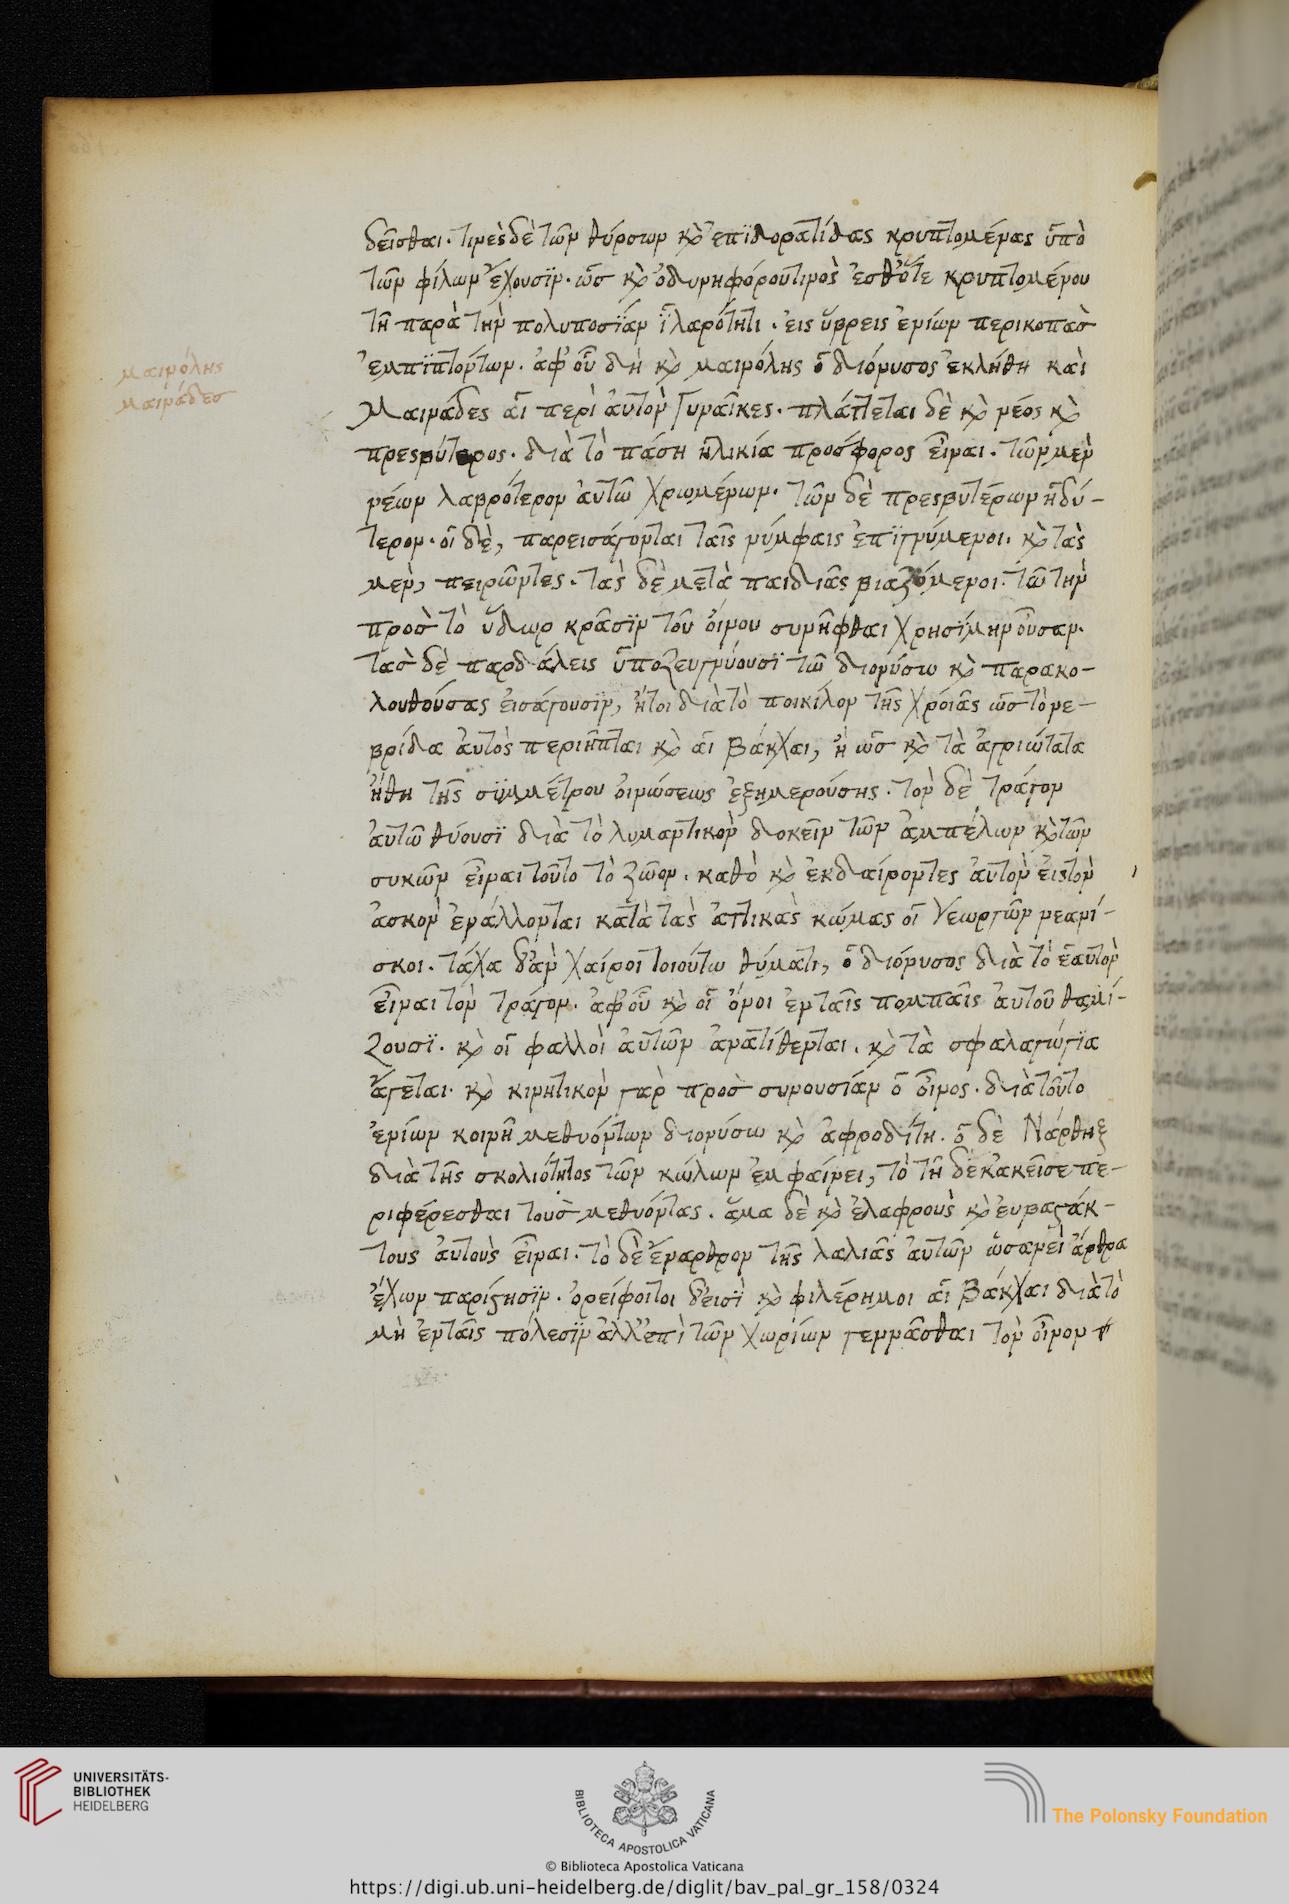 μαινόλης
μαινάδες
δεῖσθαι. τινὲς δὲ τῶν θύρσων κὲ ἐπϊδορατίδας κρυπτομένας ὑπὸ
τῶν φίλων ἔχουσϊν. ὡς κὲ ὀδυνηφόρου τινὸς ἐσθότε κρυπτομένου
τῆ παρὰ τὴν πολυποσΐαν ἱλαρότητι. εἰς ὕβρεις ἐνίων περικοπὰς
ἐμπϊπτόντων. ἀφ' οὗ δὴ κὲ μαινόλης ὁ διόνυσος ἐκλήθη καὶ
Μαινάδες αἱ περὶ ἀυτὸν γυναῖκες. πλάττεται δὲ κὲ νέος κὲ
πρεσβύτερος. διὰ τὸ πάση ἡλικία προσφορος εἶναι. τῶν μὲν
νέων λαβρότερον ἀυτῶ χρωμένων. τῶν δὲ πρεσβυτέρων ἡδύ-
τερον. οἱ δὲ, παρεισάγονται ταῖς νύμφαις ἐπϊγνύμενοι. κὲ τὰς
μὲν, πειρῶντες. τὰς δὲ μετὰ παιδιᾶς βιαζόμενοι. τῶ τὴν
προσ τὸ ὕδωρ κρᾶσϊν τοῦ οἴνου συνῆφθαι χρησΐμην οὖσαν.
τὰς δὲ παρδάλεις ὑποζευγνύουσϊ τῶ διονύσω κὲ παρακο-
λουθούσας εἰσάγουσϊν, ἤτοι διὰ τὸ ποικίλον τῆς χρόιᾶς ὡς τὸ νε-
βρίδα ἀυτός περιῆπται κὲ αἱ Βάκχαι, ἢ ὡς κὲ τὰ ἀγριώτατα
ἤθη τῆς σϋμμέτρου οἰνώσεως ἐξημερούσης. τὸν δὲ τράγον
ἀυτῶ θύουσϊ διὰ τὸ λυμαντικὸν δοκεῖν τῶν ἀμπέλων κὲ τῶν
συκῶν εἶναι τοῦτο τὸ ζῶον. καθὸ κὲ ἐκδαίροντες ἀυτὸν εἰς τὸν
ἀσκὸν ἐνάλλονται κατὰ τὰς ἀττικὰς κώμας οἱ Γεωργῶν νεανί-
σκοι. τάχα δ' ἂν χαίροι τοιούτω θύματι, ὁ διόνυσος διὰ τὸ ἑαυτὸν
εἶναι τὸν τράγον. ἀφ' οὗ κὲ οἱ ὄνοι ἐν ταῖς πομπαῖς ἀυτοῦ θαμί-
ζουσϊ. κὲ οἱ φαλλοὶ ἀυτῶν ἀνατίθενται. κὲ τὰ σφαλαγώγϊα
ἄγεται. κὲ κινητικὸν γὰρ προσ συνουσίαν ὁ οἶνος. διὰ τοῦτο
ἐνίων κοινῆ μεθυόντων διονύσω κὲ ἀφροδίτη. ὁ δὲ Νάρθηξ
διὰ τῆς σκολιότητος τῶν κώλων ἐμφαίνει, τὸ τῆ δὲ κἀκεῖσε πε-
ριφέρεσθαι τοὺς μεθυόντας. ἅμα δὲ κὲ ἐλαφροὺς κὲ ἐυβαστάκ-
τους ἀυτοὺς εἶναι. τὸ δὲ ἔναρθρον τῆς λαλιᾶς ἀυτῶν ὡσανεὶ ἄρθρα
ἔχων παρίστησϊν. ὀρείφοιτοι δ' εισϊ κὲ φιλέρημοι αἱ Βάκχαι διὰ τὸ
μὴ ἐν ταῖς πόλεσϊν ἀλλ' ἐπὶ τῶν χωρίων γεννᾶσθαι τὸν οἶνον
UNIVERSITÄTS-
BIBLIOTHEK
HEIDELBERG
BIBLIOTECA APOSTOLICA VATICANA
The Polonsky Foundation
© Biblioteca Apostolica Vaticana
https://digi.ub.uni-heidelberg.de/diglit/bav_pal_gr_158/0324